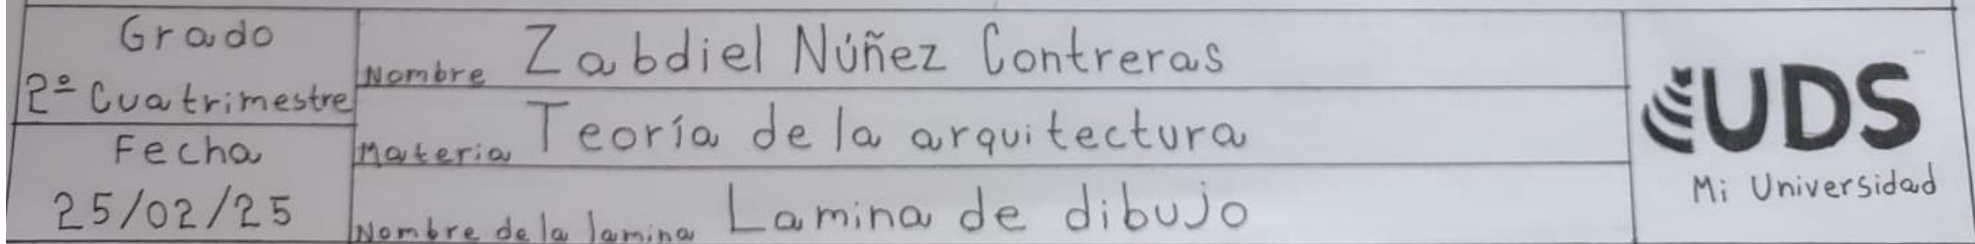 Grado
2º Cuatrimestre
Fecha
25/02/25
Nombre Zabdiel Núñez Contreras
Materia Teoría de la arquitectura
Nombre de la lamina Lamina de dibujo
UDS
Mi Universidad